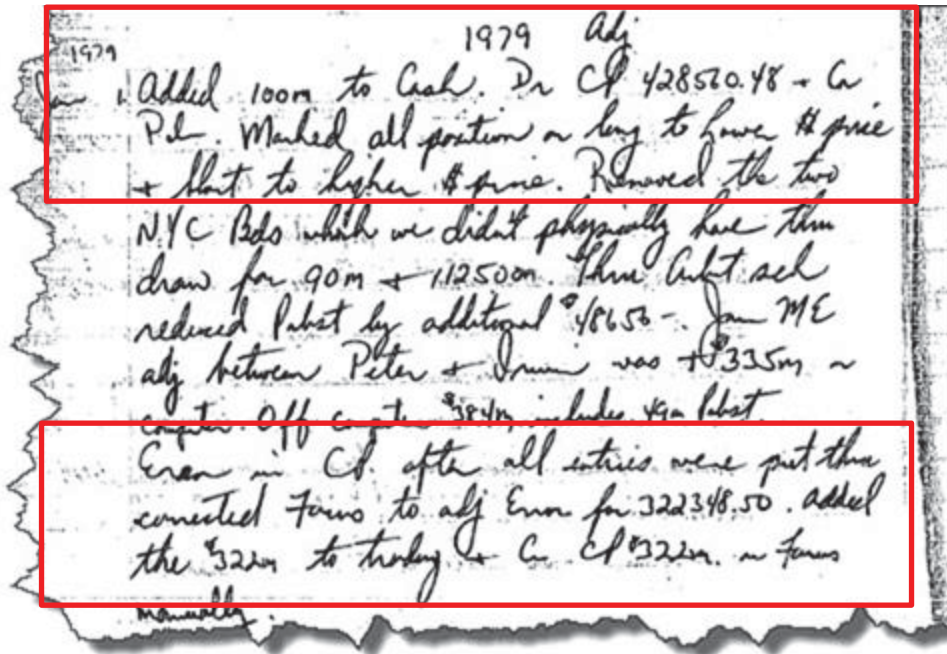 1979 Adj
1979
Jan 1 Added 100m to Cash. Dr CP 428560.48 + Cr
P&L. Marked all position on long to lower $ price
+ Short to higher $ price. Removed the two
NYC Bds which we didn't physically have thru
draw for 90m + 112500m. Thru Cubt sch
reduced Pabst by additional $48650-. Jan ME
adj between Peter + Irwin was +$335m on
computer. Off computer $384m includes 49m Pabst
Error in CP. after all entries were put thru
corrected Focus to adj Error for 322348.50. added
the $322m to trading + Cr CP $322m. in Focus
manually.